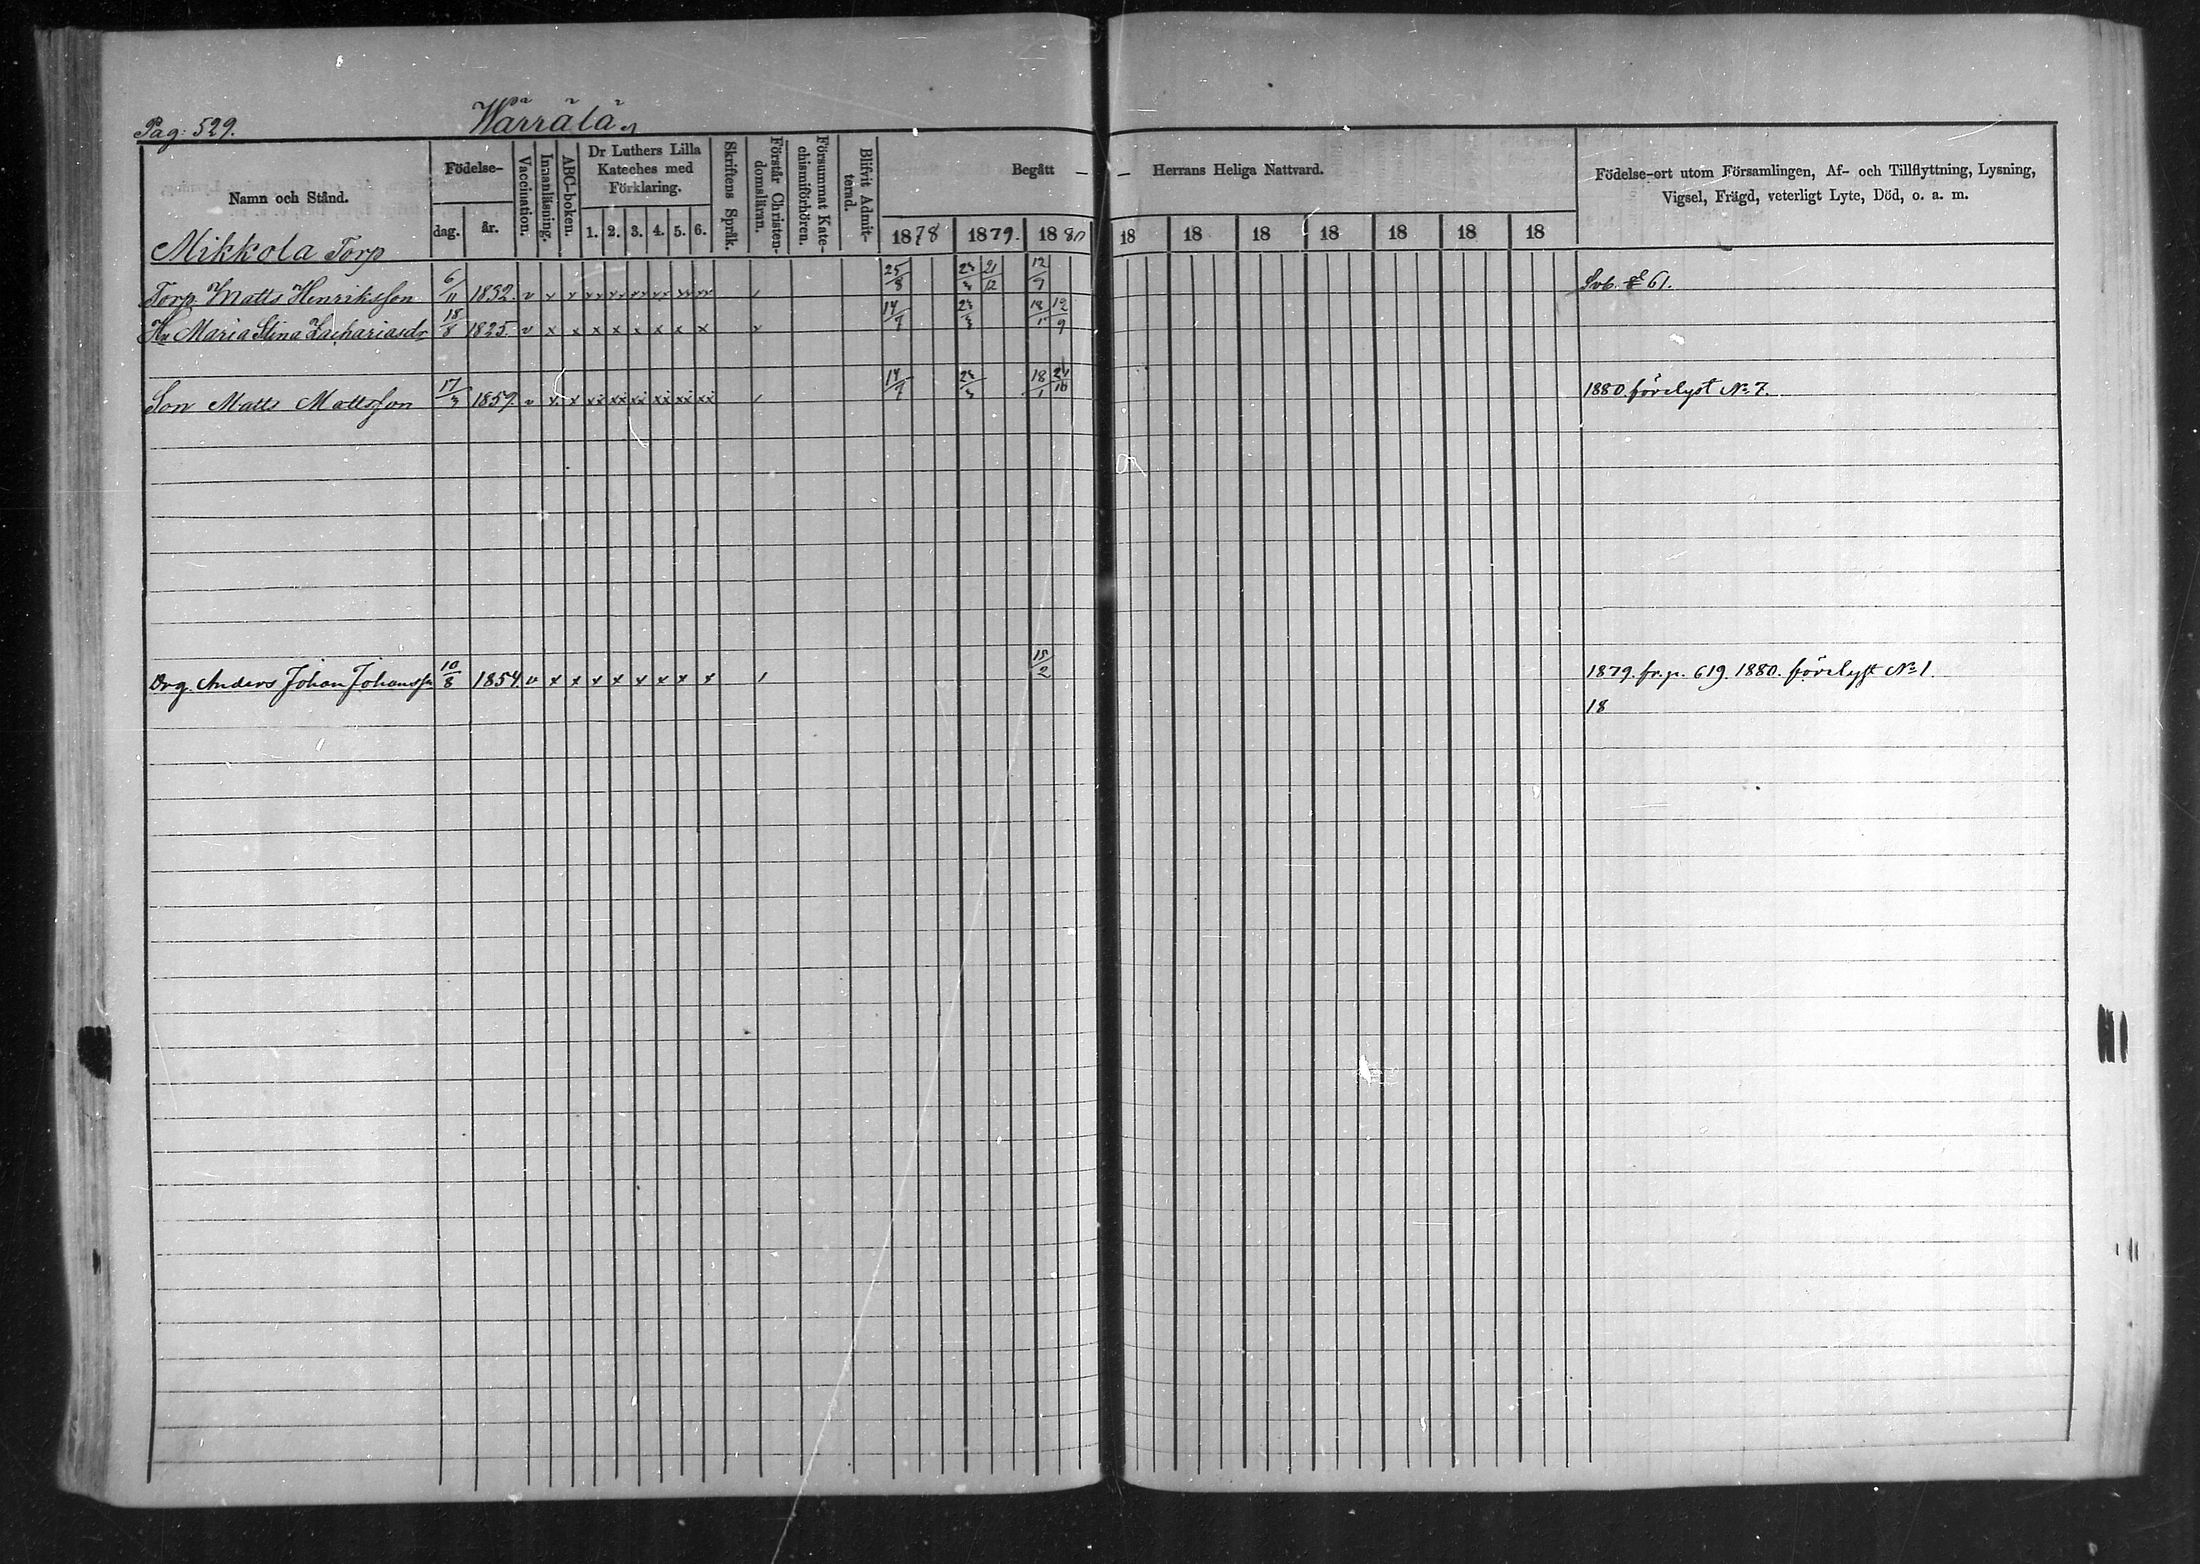 Pag: 529. Wärrälä
Namn och Stånd. Födelse- dag. år. Vaccination. Innanläsning. ABC-boken. Dr Luthers Lilla Kateches med Förklaring. 1. 2. 3. 4. 5. 6. Skriftens Språk. Förstår Christendomsläran. Försummat Katechismiförhören. Blifvit Admitterad. Begått — — Herrans Heliga Nattvard. Födelse-ort utom Församlingen, Af- och Tillflyttning, Lysning, Vigsel, Frägd, veterligt Lyte, Död, o. a. m.
1878 1879. 1880 18 18 18 18 18 18 18
Mikkola Torp
Torp. Matts Henriksson 6/11 1832. 25/8 21/12 12/9 61.
Hu Maria Stina Zachariasdr 18/8 1825. 18/1 12/9
Son Matts Mattsson 17/3 1857 18/1 1880 förelyst No 7.
Drg. Anders Johan Johansson 10/8 1854 15/2 1879. fr. p. 619. 1880. förelyst No 1.
18